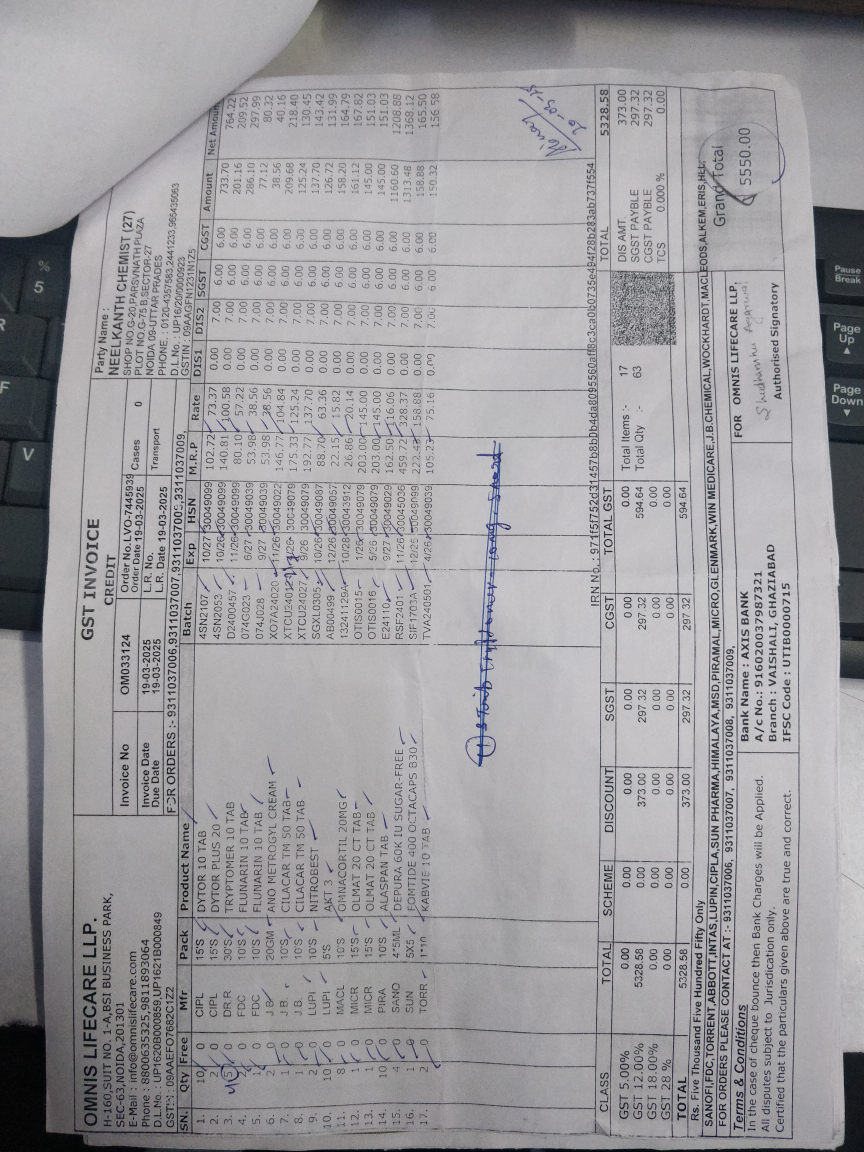 OMNIS LIFECARE LLP.
H-160,SUIT NO. 1-A,BSI BUSINESS PARK,
SEC-63,NOIDA,201301
E-Mail : info@omnislifecare.com
Phone : 8800635325,9811893064
D.L.No : UP1620B000859,UP1621B000849
GSTIN : 09AAEFO7682C1Z2
GST INVOICE
CREDIT
Invoice No OM033124 Order No. LVO-7445939
Order Date 19-03-2025 Cases 0
Invoice Date 19-03-2025 L.R. No. Transport
Due Date 19-03-2025 L.R. Date 19-03-2025
FOR ORDERS :- 9311037006,9311037007,9311037008,9311037009,
Party Name :
NEELKANTH CHEMIST (27)
SHOP NO.G-20 PARSVNATH PLAZA
PLOT NO.G-75 B SECTOR-27
NOIDA 09-UTTAR PRADES
PHONE. : 0120-4357583,2441233,965435063
D.L.No. : UP16/20/0000923
GSTIN : 09AAGFN1231N1Z5
SN. Qty Free Mfr Pack Product Name Batch Exp HSN M.R.P Rate DIS1 DIS2 SGST CGST Amount Net Amount
1. 10 0 CIPL 15'S DYTOR 10 TAB 4SN2107 10/27 30049099 102.72 73.37 0.00 7.00 6.00 6.00 733.70 764.22
2. 2 0 CIPL 15'S DYTOR PLUS 20 4SN2053 10/26 30049099 140.81 100.58 0.00 7.00 6.00 6.00 201.16 209.52
3. 5 0 DR.R 30'S TRYPTOMER 10 TAB D2400457 11/26 30049099 80.10 57.22 0.00 7.00 6.00 6.00 286.10 297.99
4. 2 0 FDC 10'S FLUNARIN 10 TAB 074G023 6/27 30049039 53.98 38.56 0.00 7.00 6.00 6.00 77.12 80.32
5. 1 0 FDC 10'S FLUNARIN 10 TAB 074J028 9/27 30049039 53.98 38.56 0.00 7.00 6.00 6.00 38.56 40.16
6. 2 0 J.B. 20GM ANO METROGYL CREAM XO7A24020 11/26 30049022 146.77 104.84 0.00 7.00 6.00 6.00 209.68 218.40
7. 1 0 J.B. 10'S CILACAR TM 50 TAB 30049079 175.33 125.24 0.00 7.00 6.00 6.00 125.24 130.45
8. 1 0 J.B. 10'S CILACAR TM 50 TAB XTCU24027 9/26 30049079 192.77 137.70 0.00 7.00 6.00 6.00 137.70 143.42
9. 2 0 LUPI 10'S NITROBEST SGXL0305 10/26 30049087 88.70 63.36 0.00 7.00 6.00 6.00 126.72 131.99
10. 10 0 LUPI 5'S AKT 3 AB00499 12/26 30049057 22.15 15.82 0.00 7.00 6.00 6.00 158.20 164.79
11. 8 0 MACL 10'S OMNACORTIL 20MG 13241129A 10/28 30043912 26.86 20.14 0.00 7.00 6.00 6.00 161.12 167.82
12. 1 0 MICR 15'S OLMAT 20 CT TAB OTIS0015 1/26 30049079 203.00 145.00 0.00 7.00 6.00 6.00 145.00 151.03
13. 1 0 MICR 15'S OLMAT 20 CT TAB OTIS0016 5/26 30049079 203.00 145.00 0.00 7.00 6.00 6.00 145.00 151.03
14. 10 0 PIRA 10'S ALASPAN TAB E24110 9/27 30049029 162.50 116.06 0.00 7.00 6.00 6.00 1160.60 1208.88
15. 4 0 SANO 4*5ML DEPURA 60K IU SUGAR-FREE RSF2401 11/26 30045036 459.72 328.37 0.00 7.00 6.00 6.00 1313.48 1368.12
16. 1 0 SUN 5X5 EOMTIDE 400 OCTACAPS B30 SIF1703A 12/25 30049099 222.43 158.88 0.00 7.00 6.00 6.00 158.88 165.50
17. 2 0 TORR 1*10 KABVIE 10 TAB TVA240501 4/26 30049039 105.23 75.16 0.00 7.00 6.00 6.00 150.32 156.58
20-03-25
IRN No.: 971f5f752d31457b8b0b4da8095560aff8c3ca0b0735e494f28b283ab737f554
CLASS TOTAL SCHEME DISCOUNT SGST CGST TOTAL GST
GST 5.00% 0.00 0.00 0.00 0.00 0.00 0.00
GST 12.00% 5328.58 0.00 373.00 297.32 297.32 594.64
GST 18.00% 0.00 0.00 0.00 0.00 0.00 0.00
GST 28 % 0.00 0.00 0.00 0.00 0.00 0.00
TOTAL 5328.58 0.00 373.00 297.32 297.32 594.64
Total Items :- 17
Total Qty :- 63
TOTAL 5328.58
DIS AMT. 373.00
SGST PAYBLE 297.32
CGST PAYBLE 297.32
TCS 0.000 % 0.00
Rs. Five Thousand Five Hundred Fifty Only
Grand Total
5550.00
SANOFI,FDC,TORRENT,ABBOTT,INTAS,LUPIN,CIPLA,SUN PHARMA,HIMALAYA,MSD,PIRAMAL,MICRO,GLENMARK,WIN MEDICARE,J.B.CHEMICAL,WOCKHARDT,MACLEODS,ALKEM,ERIS,HLL,
FOR ORDERS PLEASE CONTACT AT :- 9311037006, 9311037007, 9311037008, 9311037009,
Terms & Conditions
In the case of cheque bounce then Bank Charges will be Applied.
All disputes subject to Jurisdication only.
Certified that the particulars given above are true and correct.
Bank Name : AXIS BANK
A/c No.: 916020037987321
Branch : VAISHALI, GHAZIABAD
IFSC Code : UTIB0000715
FOR OMNIS LIFECARE LLP.
Authorised Signatory
%
5
R
F
V
Pause
Break
Page
Up
Page
Down